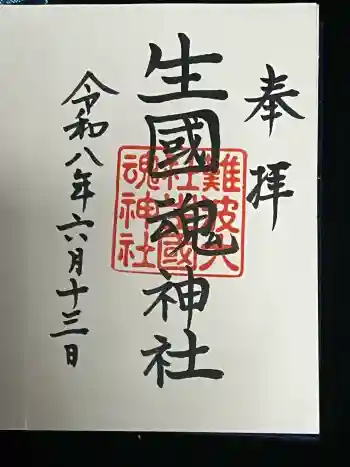 奉拝
生國魂神社
令和八年六月十三日
難波大
社
國
魂神社